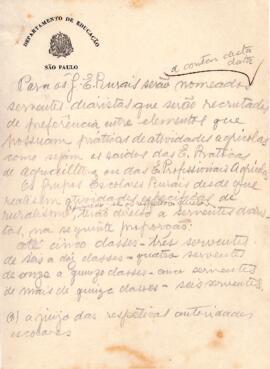 DEPARTAMENTO DE EDUCAÇÃO
SÃO PAULO
a contar desta
data
Para os G. E. Rurais serão nomeados
serventes diaristas que serão recrutados
de preferência entre elementos que
possuam práticas de atividades agrícolas
como sejam os saídos das E. Práticas
de Agricultura ou das E. Profissionais Agrícolas
Os Grupos Escolares Rurais desde que
realizem atividades
de
ruralismo terão direito a serventes diaris
tas, na seguinte proporção:
até cinco classes - três serventes
de seis a dez classes - quatro serventes
de onze a quinze classes - cinco serventes
de mais de quinze classes - seis serventes.
a juizo das respetivas autoridades
escolares